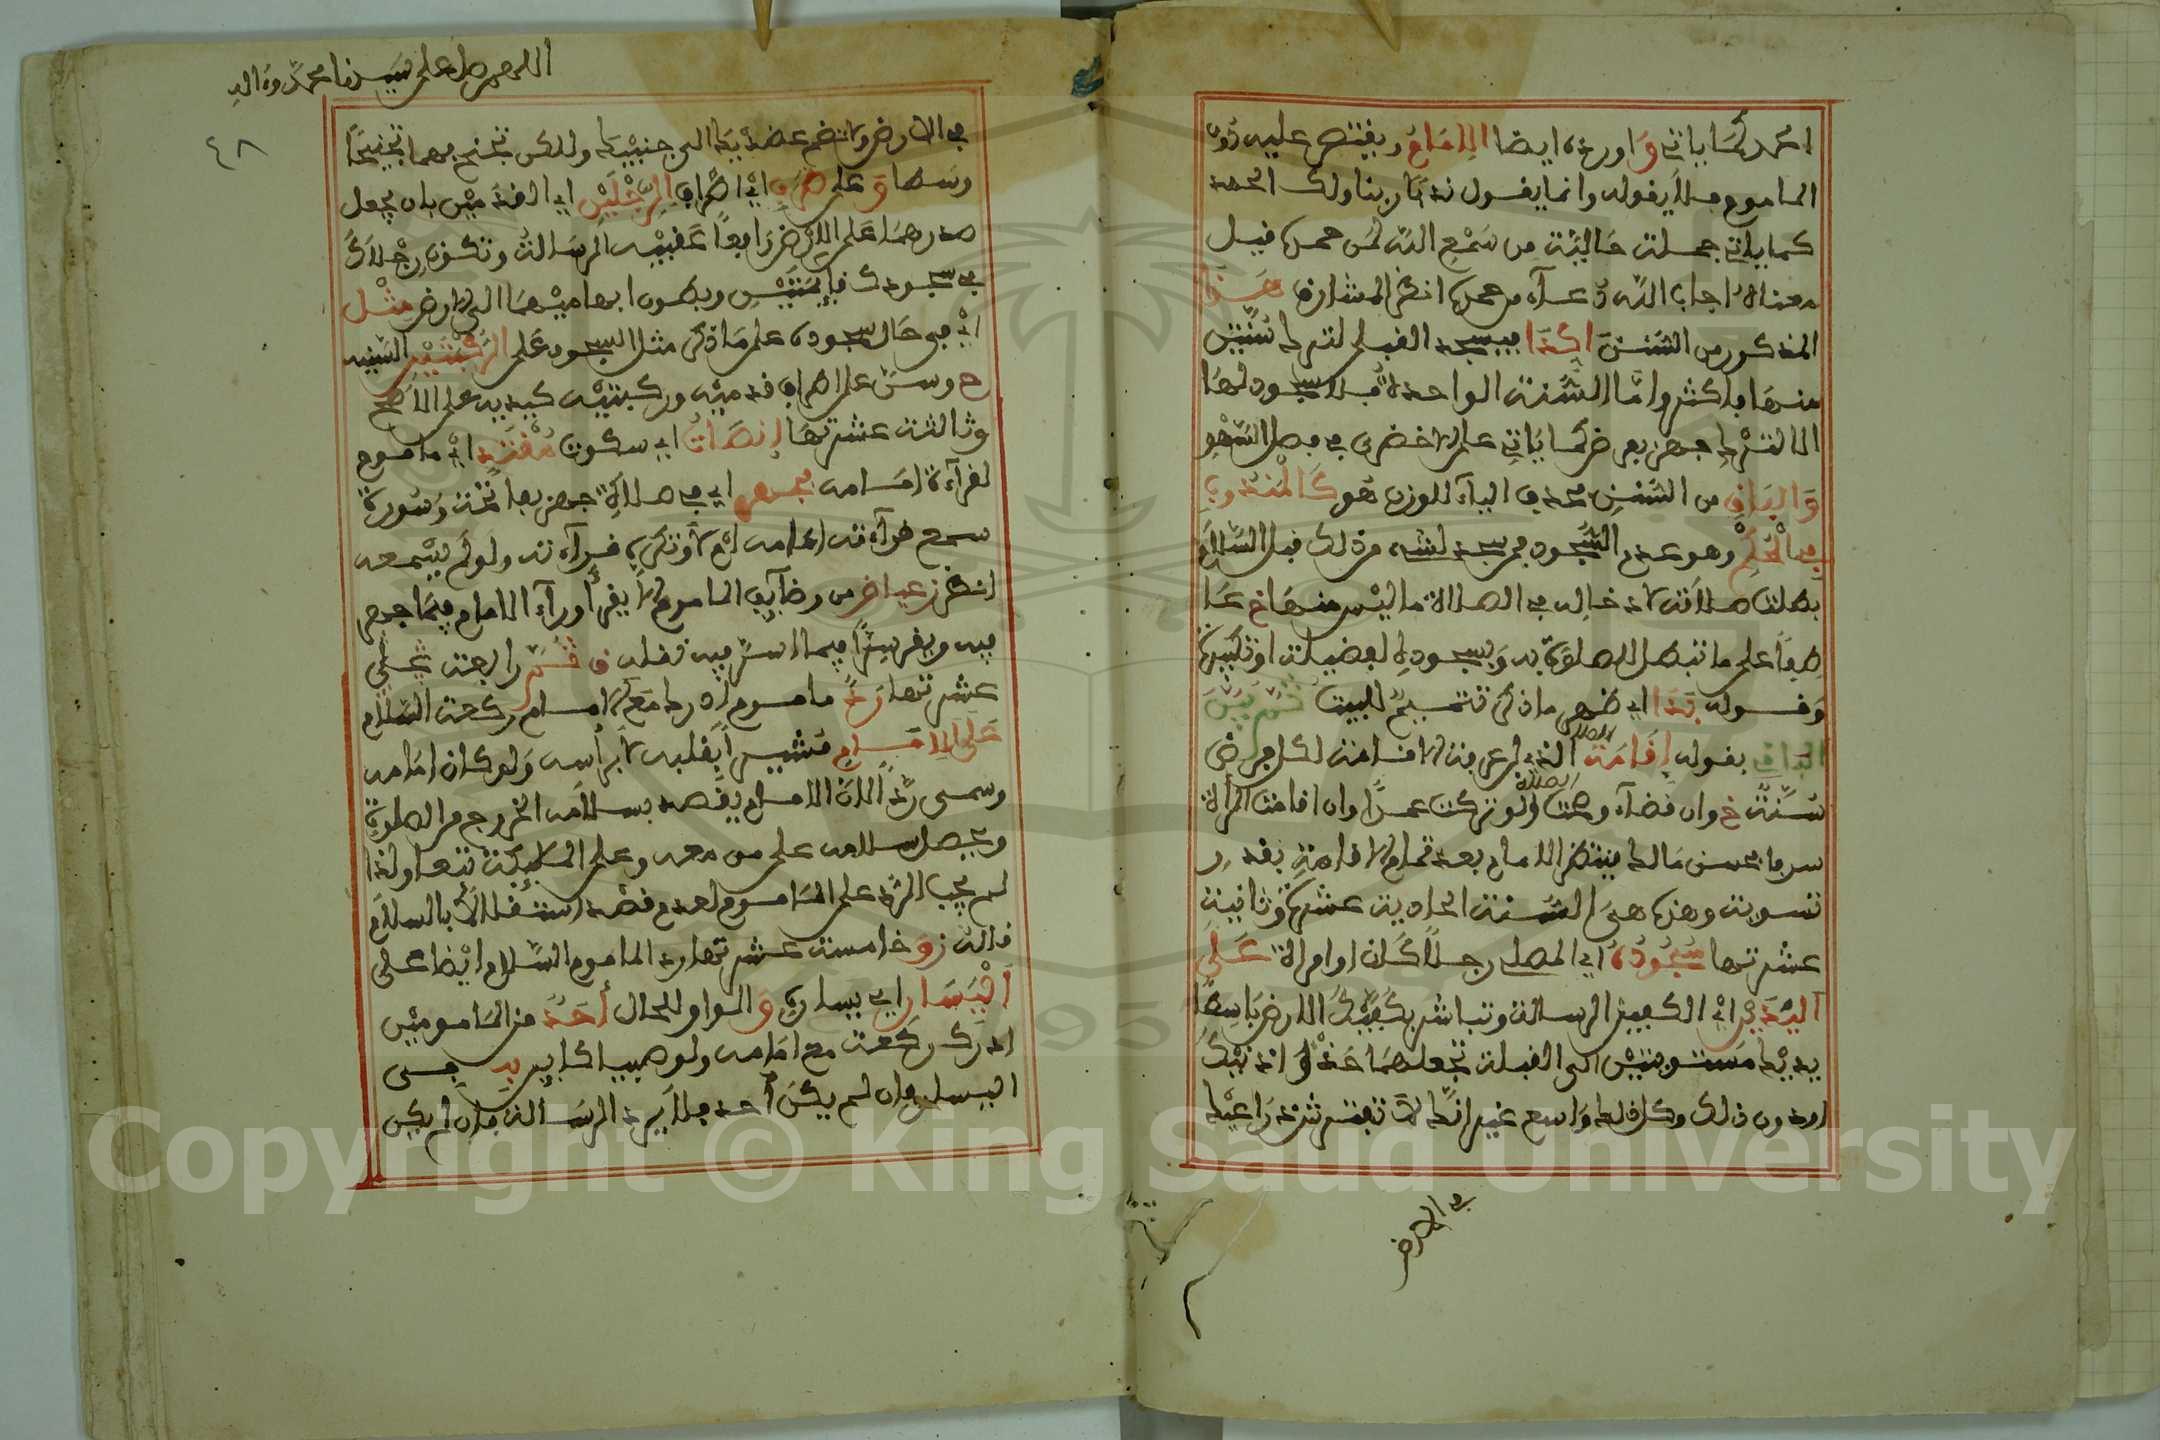 الحمد كما ياتي وَاورده ايضا الإِمَامُ ويقتصر عليه دون
الماموم فلا يقوله وانما يقول ندبا ربنا ولك الحمد
كما ياتي جملة حالية من سَمْع الله لمن حمده قيل
معناه اجاب الله دعآء من حمده انظر المشارق هَذَا
المذكور من السنن اكِّدَا فيسجد القبلي لترك سُنتين
منها فاكثر وامّا السُّنة الواحدة فلا سجود لها
الا لترك جهر بفرض كما يَاتي على الاخضري في فصل السَّهْو
وَالبَاقِ من السُّنن بحذف اليآء للوزن هُو كَالْمَنْدُوبِ
فِي الْحُكْمْ وهو عدم السُّجود فمن سجد لشيء من ذلك قبل السَّلام
بطلت صلاته لادخاله في الصلاة ما ليْس منها خ عَا
طِفاً على ما تبطل الصلوة به وَبسجوده لفضيلة او تكبيرة
وَقوله بَدَا اي ظهر ماذكر تتميمٌ للبيت ثم بيّن
الباقي بقوله إِقَامَة الصلاة الذي لم عرفة الاقامة لكل فرض
سُنّة خ وان قضآء وصحت الصلاة ولو تركت عمدًا وان اقامت المرأة
سرا فحسن مَالك ينتظر الامام بعد تمام الاقامة بقدر
تسوية وهذه هيَ السُّنة الحادية عشرة وثانية
عشرتها سُجُودُهُ اي المصلي رجلًا كَان او امراة عَلَى
الْيَدَيْنِ ايْ الكفين الرسالة وتباشر بكفيْك الارض بَاسِطًا
يديْك مَستويتيْن الى القبلة تجعلهما حَذْوَ اذنيْك
او دون ذلك وكل ذلك وَاسع غير انّك لا تفترش ذراعيْك
في الارض
اللهم صل على سيدنا محمد وءاله
٤٨
في الارض ولا تضم عضدَيْك الى جنبيْك ولكن تجنح بهما تجنيحًا
وسطا وَ على طَرَفِ ايْ اطْراف الرِّجْلَيْنِ اي القدميْن بان يجعل
صدرهمَا على الارْض رَافعاً عَقبيْه الرسَالة وتكون رِجْلاكَ
في سجودك قائمتَيْنِ وبطون ابهاميْهما الى الارض مِثْل
ايْ في حَال سجوده على مَا ذكر مثل السجود عَلى الرُّكْبَتَيْنِ الشبيه
ح وسنّ على اطراف قدميْه وركبتيْه كيديه على الاَصحّ
وثالثة عشرتها إِنصَاتُ اي سكوت مُقْتَدٍ ايْ ماموم
لقرآءة امَامه بجهر اي في صلاةِ جهر بفاتحة وَسُورة
سمع قرآءته امامه ام لا وتكره قرآءته ولو لم يسْمعه
انظر ز عياض من وظآئف الماموم الا يقرأ ورآء الامام فيمَا جهر
فيه ويقر سِرًّا فيما اسرّ فيه نقله ق ثُمّ رابعة يحلّي
عشرتها رَدُّ ماموم ادرك مَع الامام ركعة السَّلام
عَلَى الامَامِ مشيرا بقلبه لا برأسه وَلو كان امَامه
وسمى ردًّا لانّ الامام يقصد بسلامه الخروج من الصلوة
ويحصل سلامه على من معه وعلى الملائكة تبعا ولذا
لم يجب الرّد على المَاموم لعدم قصده استقلالاً بالسلام
قاله ز وَ خامسة عشرتها رد الماموم السَّلام ايْضا على
اَلْيَسَار اي يساره وَ الواو للحال أَحَدٌ من المامومين
ادرك ركعة مع امَامه ولو صبيا كاين بِهِ فى
اليسار فان لم يكن أحد فلا يرد الرسَالة فان لم يكن